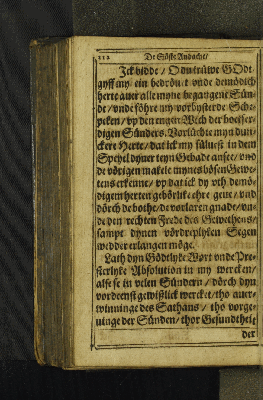 212 De Söste Andacht/
Ick bidde / O du trüwe GOdt/
gyff my ein bedröuet vnde demödich
herte auer alle myne begangene Sün-
de / vnde föhre my vorbysterde Sche-
peken / vp den engen Wech der boetfer-
digen Sünders. Vorlüchte myn dun-
ckere Herte / dat ick my süluest in dem
Speyel dyner teyn Gebade ansee / vnd
de vörigen makele mynes bösen Gewe-
tens erkenne / vp dat ick dy vth demö-
digem herten gebörlike ehre geue / vnd
dörch de bothe / de vorlaren gnade / vn-
de den rechten Frede des Gewethens /
sampt dynen vördreplyken Segen
wedder erlangen möge.
Lath dyn Gödtlyke Wort vnde Pre-
sterlyke Absolution in my wercken /
alse se in velen Sündern / dörch dyn
vordenst gewißlick wercket / tho auer-
winninge des Sathans / tho vorge-
uinge der Sünden / thor Gesundtheit
der